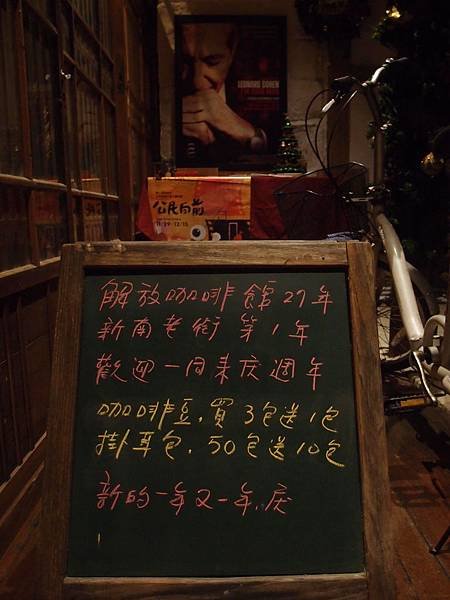 LEONARD COHEN
公民向前
11/29-12/15
解放咖啡館 27年
新南老街 第1年
歡迎一同來庆週年
咖啡豆.買3包送1包
掛耳包.50包送10包
新的一年又一年.庆